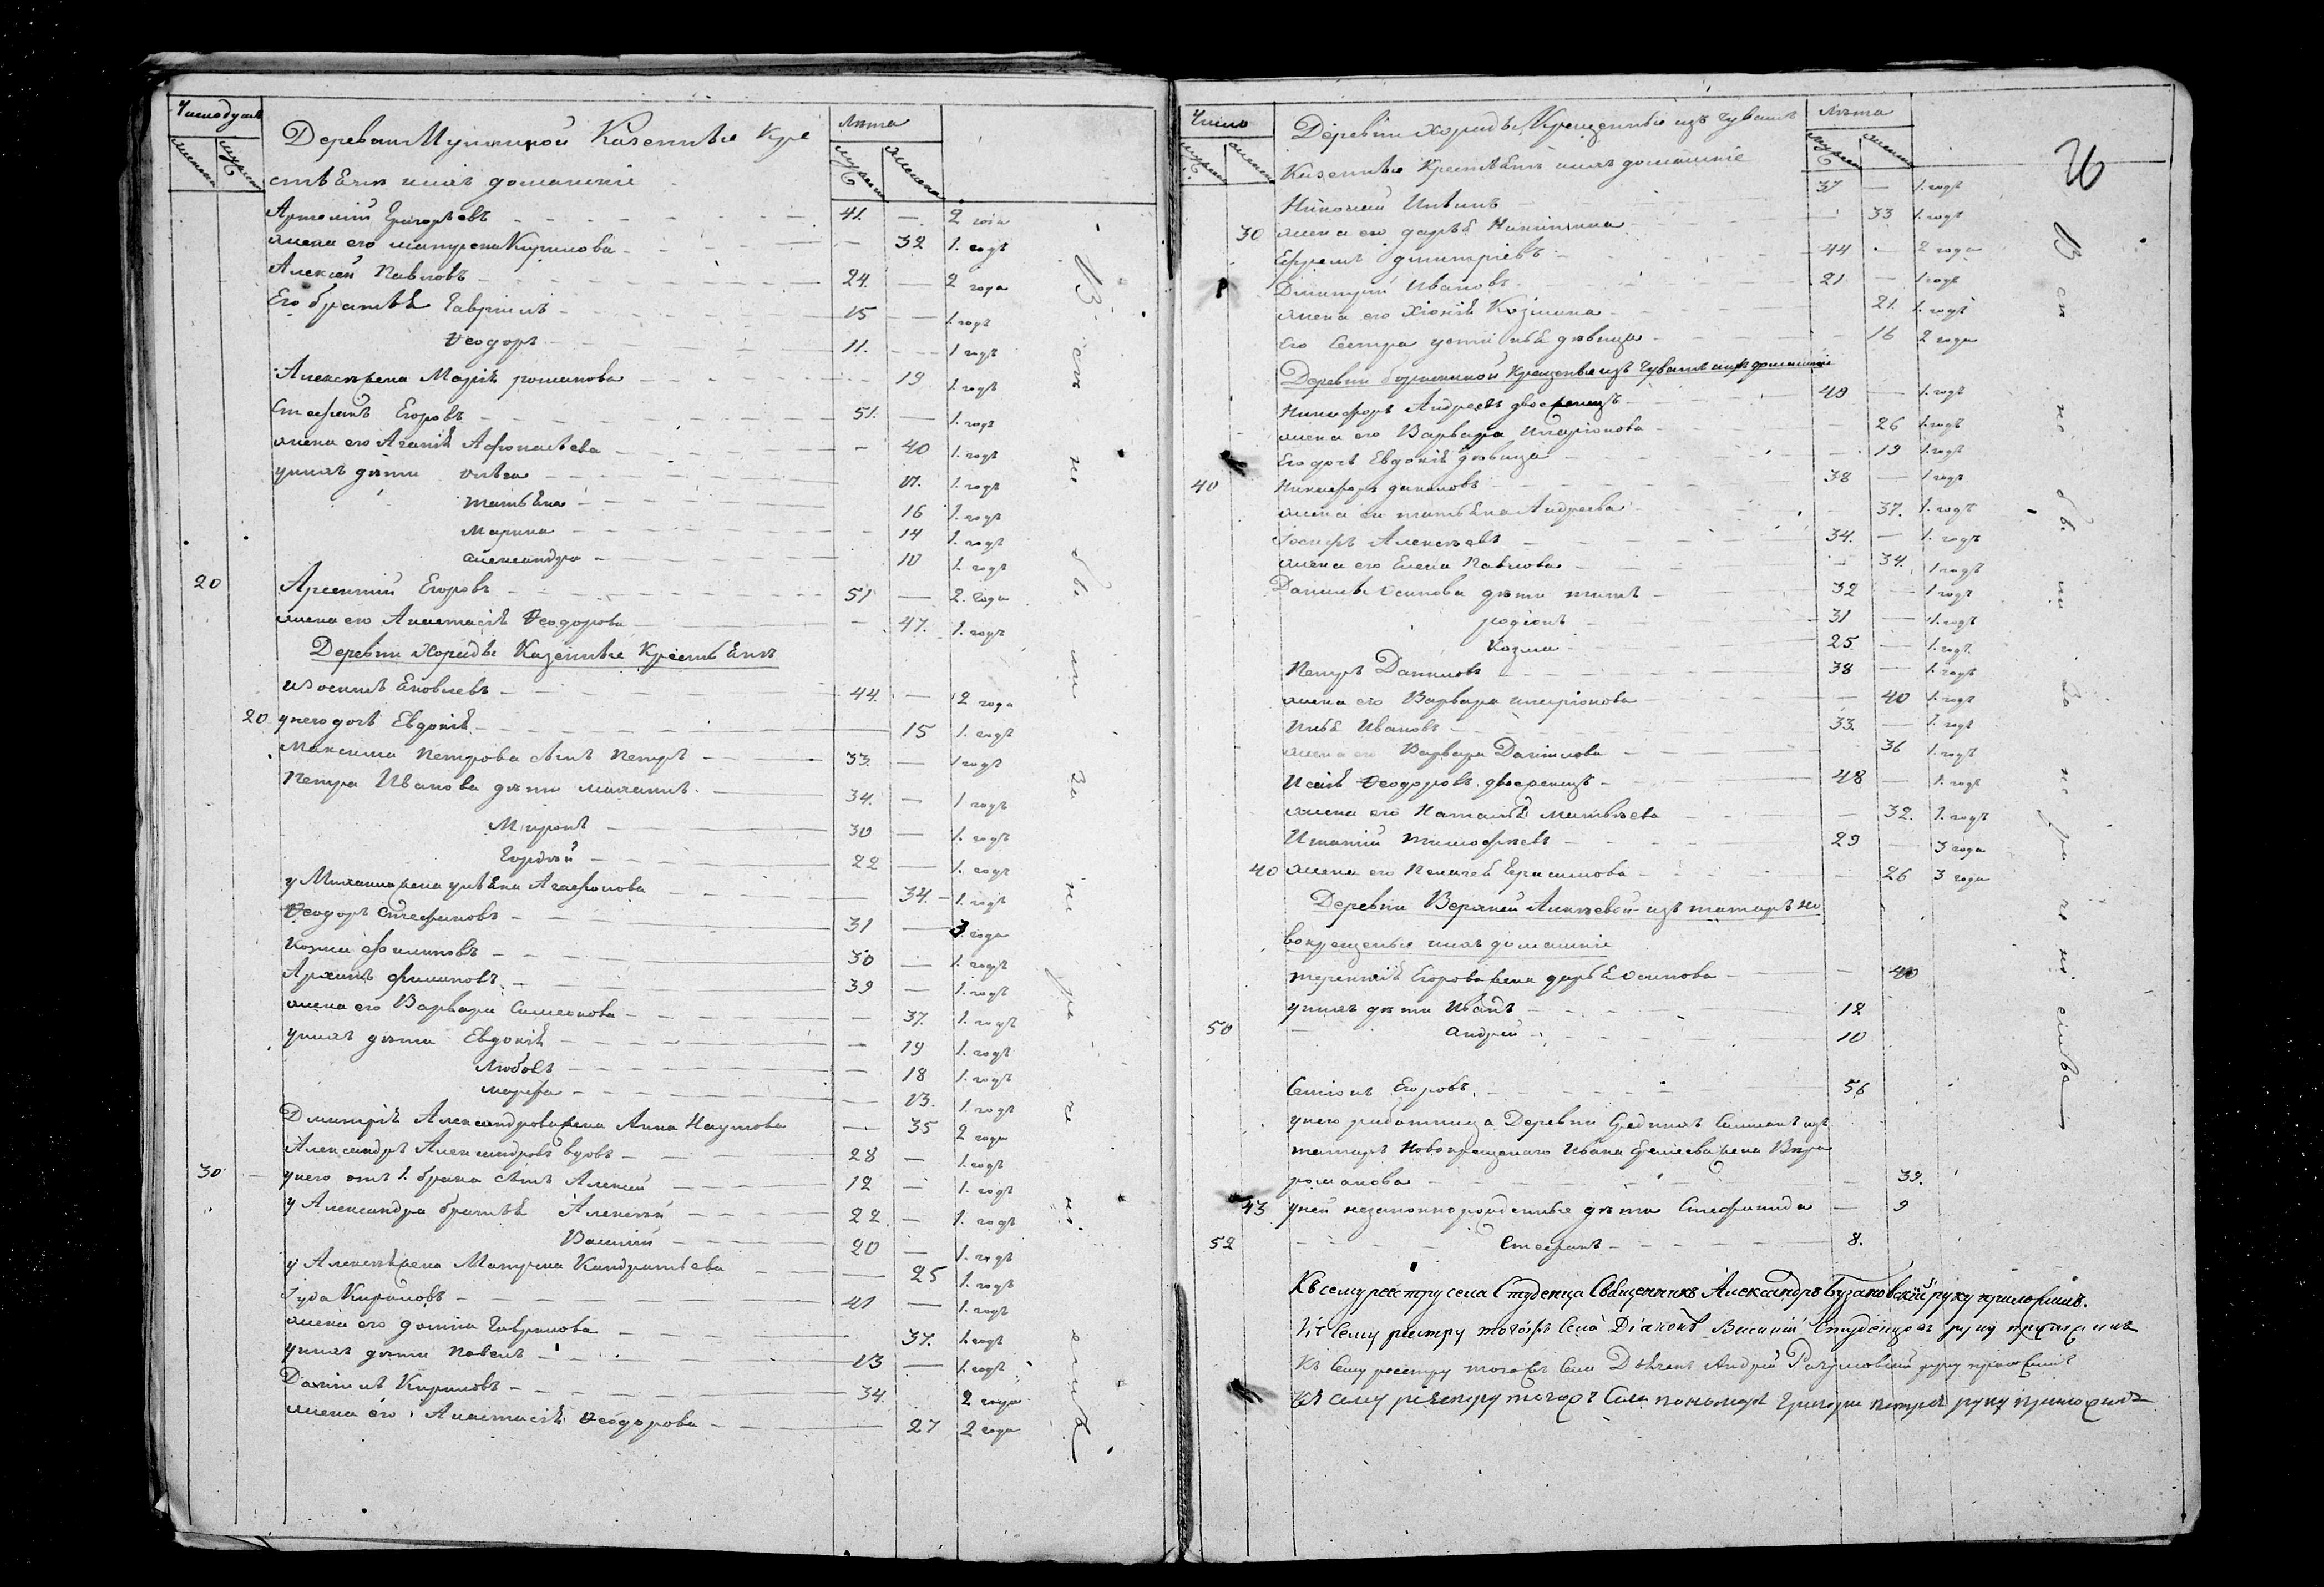 Число душъ
женска
мужеск
Деревни Казенные Кре
стьяня и ихъ домашніе
Лѣта
мужеска
женска
Артемій Григорьевъ 41. 2 года
жена его Матрена Кирилова 32 1. годъ
Алексѣй Павловъ 24. 2 года
Его братья Гавріилъ 15 1. годъ
Ѳеодоръ 11. 1 годъ
Алексѣя жена Марія Романова 19 1. годъ
Стефанъ Егоровъ 51. 1. годъ
жена его Агапія Афонасьева 40 1. годъ
у нихъ дѣти 17. 1. годъ
Татьяна 16 1. годъ
Марина 14 1. годъ
Александра 10 1. годъ
20 Арсентій Егоровъ 51 2. года
жена его Анастасія Ѳеодорова 47. 1. годъ
Деревни Казенные Крестьяня
Яковлевъ 44. 2 года
20 у него дочь Евдокія 15 1. годъ
Максима Петрова сынъ Петръ 33. 1 годъ
Петра Иванова дѣти Михаилъ 34. 1 годъ
Миронъ 30 1. годъ
Гордѣй 22 1. годъ
у Михаила жена Агафонова 34. 1. годъ
Ѳеодоръ Стефановъ 31 3 года
Козма Филиповъ 30 1. годъ
Архипъ Филиповъ 39 1. годъ
жена его Варвара Симеонова 37. 1. годъ
у нихъ дѣти Евдокія 19 1. годъ
Любовь 18 1. годъ
Марфа 13. 1. годъ
Дмитрія Александрова жена Анна Наумова 35 2 года
Александръ Александровъ вдовъ 28 1. годъ
30 у него отъ 1. брака сынъ Алексѣй 12 1. годъ
у Александра братья Алексѣй 22 1. годъ
Василій 20 1. годъ
у Алексѣя жена Матрена Кондратьева 25 1. годъ
Іуда Кириловъ 41 1. годъ
жена его Домна Гаврилова 37. 1. годъ
у нихъ дѣти Павелъ 13 1. годъ
Даніилъ Кириловъ 34. 2 года
жена его Анастасія Ѳеодорова 27 2 года
В си не бы ли за не ра че ні емъ
Число
мужеск
женска
Деревни Крещенные изъ Чувашъ
Казенные Крестьяня и ихъ домашніе
Лѣта
мужеска
женска
Николай 37 1. годъ
30 жена его Дарья Никитина 33 1. годъ
Ефремъ Дмитріевъ 44 2 года
Дмитрій Ивановъ 21 1 годъ
жена его Хіонія Козмина 21. 1. годъ
Его сестра Устинья дѣвица 16 2 года
Деревни Крещеные изъ Чувашъ и ихъ домашніе
Никифоръ Андреевъ двоеженецъ 49 1. годъ
жена его Варвара Иларіонова 26 1. годъ
Его дочь Евдокія дѣвица 19 1. годъ
40 Никифоръ Даниловъ 38 1 годъ
жена ег Татьяна Андреева 37. 1. годъ
Іосифъ Алексѣевъ 34. 1. годъ
жена его Елена Павлова 34. 1 годъ
Данилы Осипова дѣти Титъ 32 1 годъ
Родіонъ 31 1. годъ
Козма 25 1. годъ
Петръ Даниловъ 38 1. годъ
жена его Варвара Иларіонова 40 1. годъ
Илья Ивановъ 33. 1. годъ
жена его Варвара Данилова 36 1. годъ
Исай Ѳеодоровъ двоеженецъ 48 1. годъ
жена его Наталья Матвѣева 32. 1. годъ
Игнатій Тимофѣевъ 29 3 года
40 жена его Пелагея Герасимова 26 3 года
Деревни Верхней Алексѣевой изъ татаръ но
вокрещеные и ихъ домашніе
Терентія Егорова жена Дарья Осипова 40
у нихъ дѣти Иванъ 12
50 Андрей 10
Семіонъ Егоровъ 56
у него работница Деревни изъ
татаръ Новокрещенаго Ивана жена Вѣра
Романова 39.
43 у ней незаконнорожденные дѣти Стефанида 9
52 Стефанъ 8.
Къ сему реэстру села Студенца Священникъ Александръ Бузановскій руку приложилъ.
Къ Сему реестру тогожъ Села Діаконъ Василій Студенцовъ руку приложилъ
Къ Сему реестру тогожъ Села Дьячекъ Андрей руку приложилъ
Къ сему реэстру тогожъ Села пономарь Григорій Петровъ руку приложилъ
В си не бы ли за не ра че ні емъ